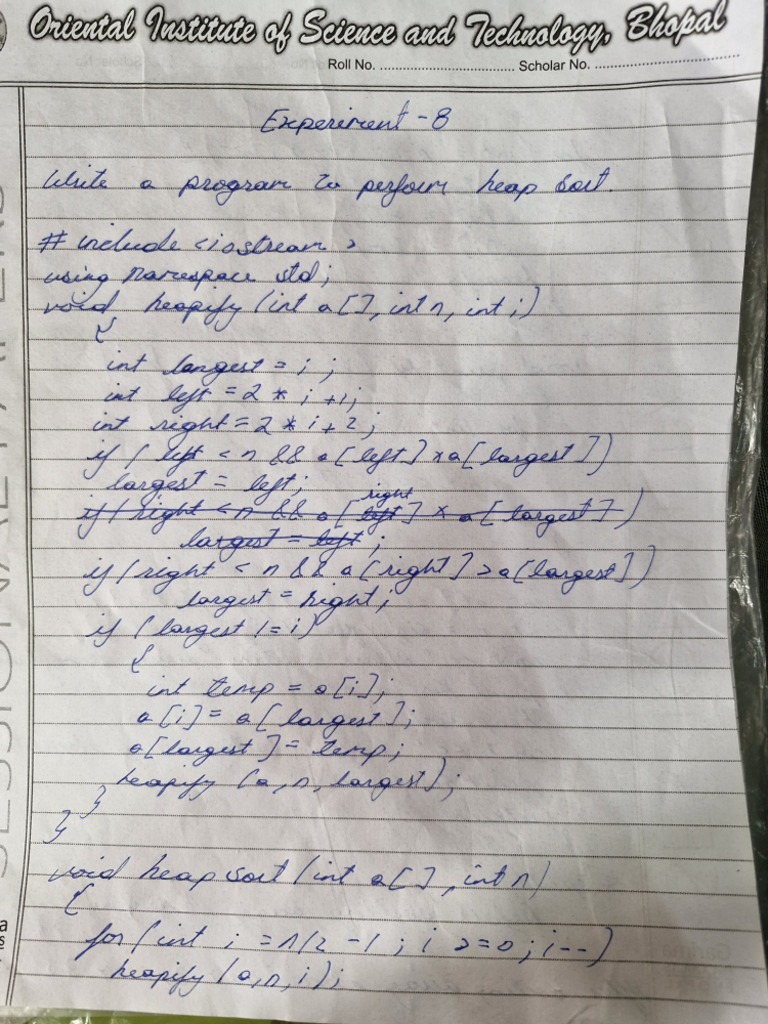 Oriental Institute of Science and Technology, Bhopal
Roll No. ........................................ Scholar No. ........................................
Experiment - 8
Write a program to perform heap sort.
# include <iostream>
using namespace std;
void heapify (int a[], int n, int i)
{
int largest = i ;
int left = 2 * i +1;
int right = 2 * i + 2;
if ( left < n && a[left] > a[largest])
largest = left;
right
if (right < n && a[left] > a[largest])
largest = left ;
if (right < n && a[right] > a[largest])
largest = right;
if (largest != i)
{
int temp = a[i];
a[i] = a[largest];
a[largest] = temp;
heapify (a, n, largest);
}
}
void heap sort (int a[], int n)
{
for (int i = n/2 -1 ; i >=0 ; i--)
heapify (a,n,i);